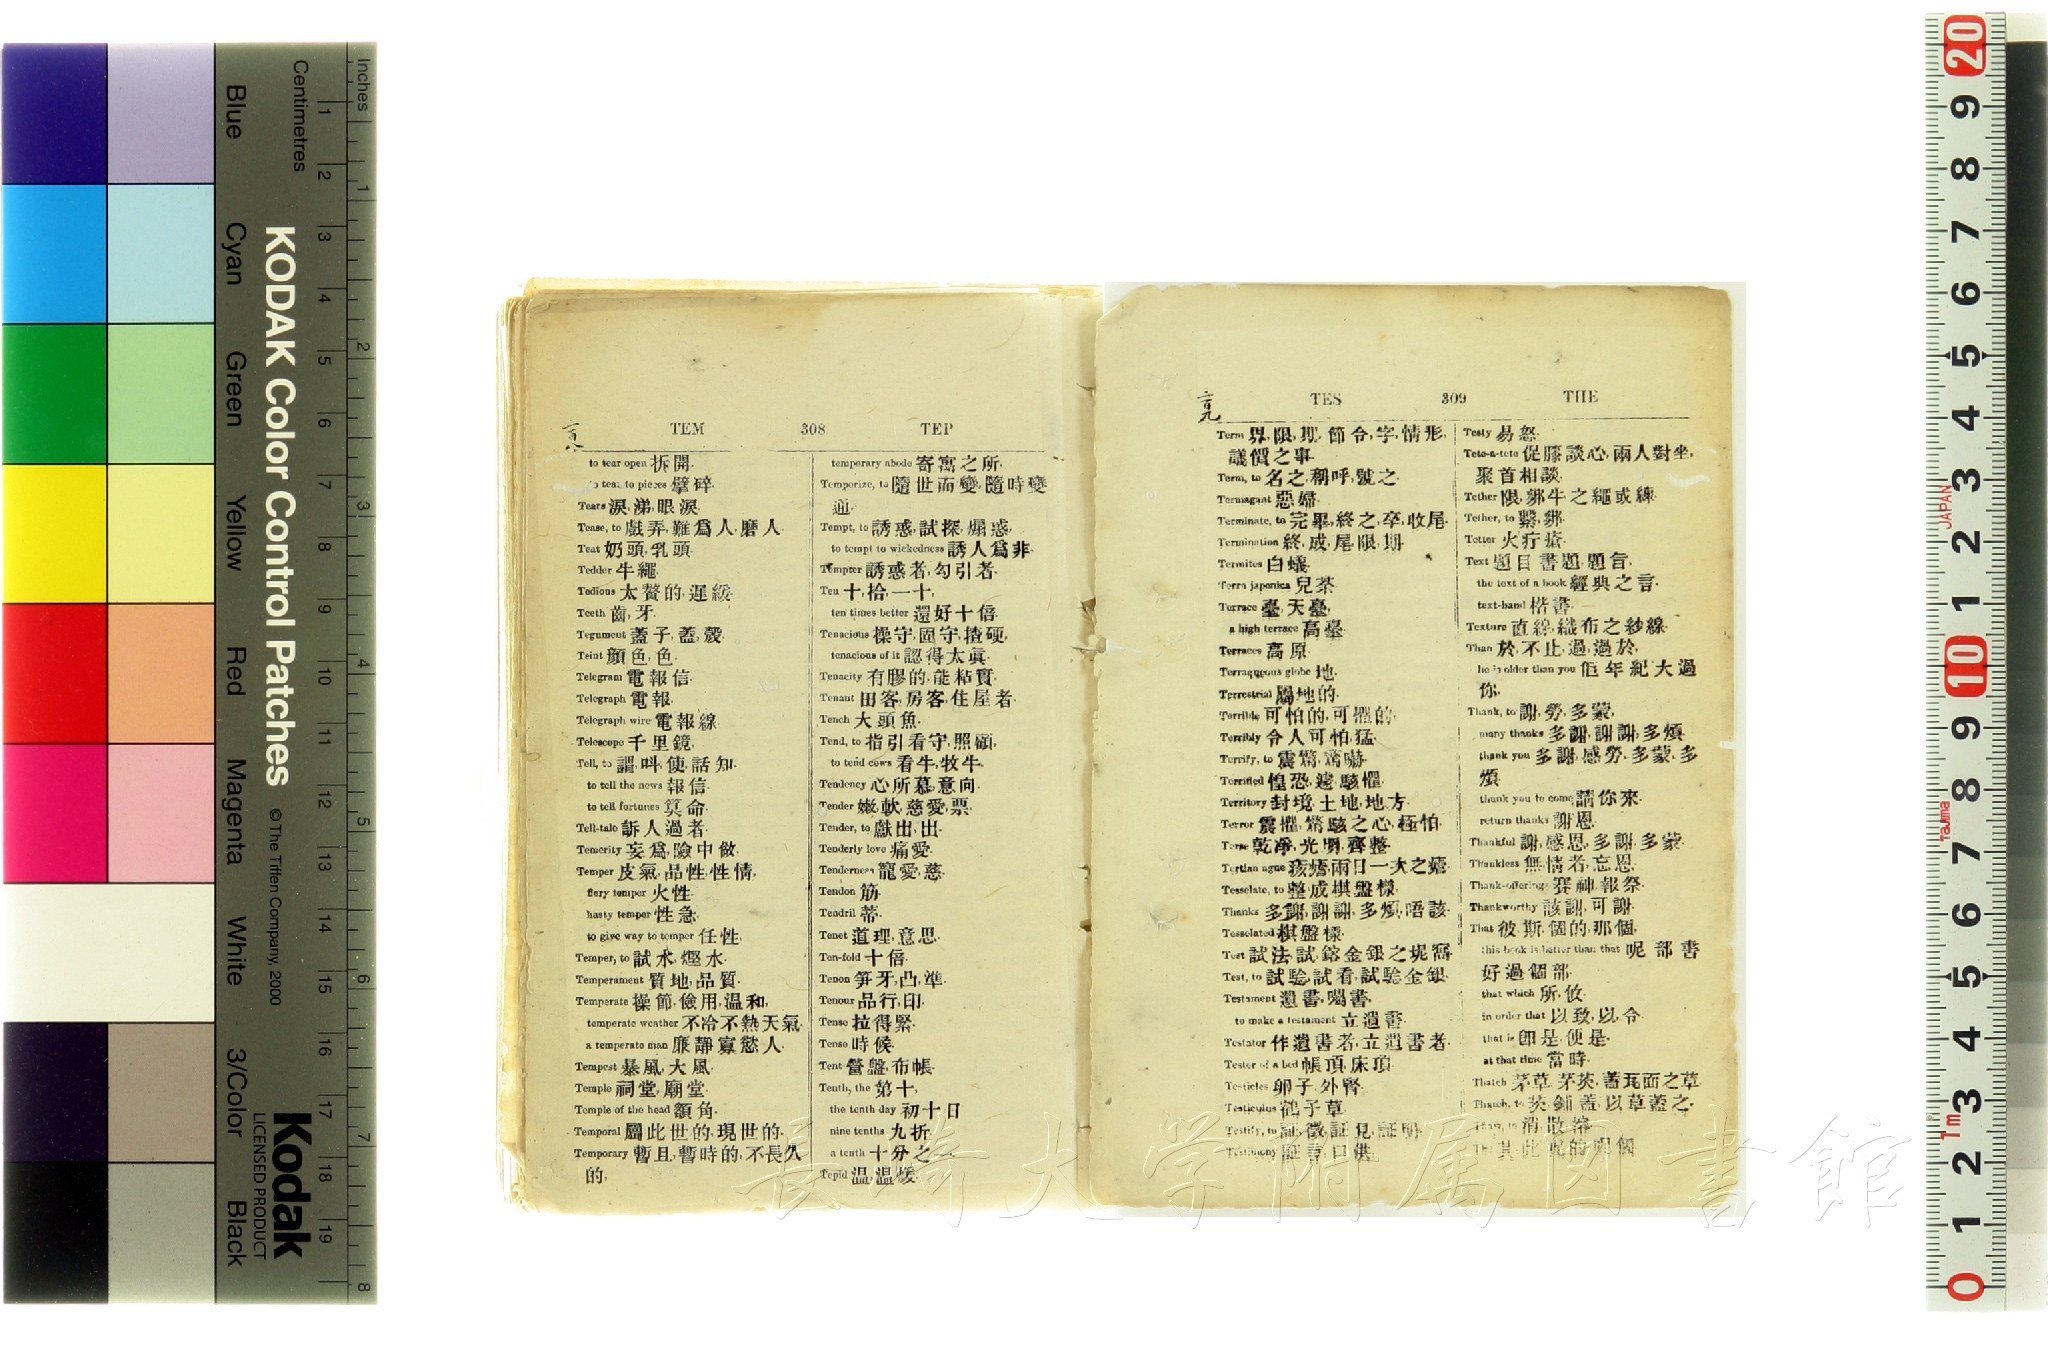 Inches
Centimetres
Blue
Cyan
Green
Yellow
Red
Magenta
White
3/Color
Black
KODAK Color Control Patches
© The Tiffen Company, 2000
Kodak
LICENSED PRODUCT
TEM 308 TEP
to tear open 拆開.
to tear to pieces 擘碎.
Tears 淚,涕,眼淚.
Tease, to 戲弄,難爲人,磨人.
Teat 奶頭,乳頭.
Tedder 牛繩.
Tedious 太贅的,遲緩.
Teeth 齒,牙.
Tegument 蓋子,蓋,殼.
Teint 顏色,色.
Telegram 電報信.
Telegraph 電報.
Telegraph wire 電報線.
Telescope 千里鏡.
Tell, to 謂,叫,使,話,知.
to tell the news 報信.
to tell fortunes 算命.
Tell-tale 訴人過者.
Temerity 妄爲,險中做.
Temper 皮氣,品性,性情.
fiery temper 火性.
hasty temper 性急.
to give way to temper 任性.
Temper, to 試水,煙水.
Temperament 質地,品質.
Temperate 操節,儉用,温和.
temperate weather 不冷不熱天氣.
a temperate man 廉靜寡慾人.
Tempest 暴風,大風.
Temple 祠堂,廟堂.
Temple of the head 額角.
Temporal 屬此世的,現世的.
Temporary 暫且,暫時的,不長久
的.
temporary abode 寄寓之所.
Temporize, to 隨世而變,隨時變
通.
Tempt, to 誘惑,試探,煽惑.
to tempt to wickedness 誘人爲非.
Tempter 誘惑者,勾引者.
Ten 十,拾,一十.
ten times better 還好十倍.
Tenacious 操守,固守,揸硬.
tenacious of it 認得太眞.
Tenacity 有膠的,能粘實.
Tenant 田客,房客,住屋者.
Tench 大頭魚.
Tend, to 指引,看守,照顧.
to tend cows 看牛,牧牛.
Tendency 心所慕,意向.
Tender 嫩,軟,慈愛,票.
Tender, to 獻出,出.
Tenderly love 痛愛.
Tenderness 寵愛,慈.
Tendon 筋.
Tendril 蒂.
Tenet 道理,意思.
Ten-fold 十倍.
Tenon 笋牙,凸,準.
Tenour 品行,印.
Tense 拉得緊.
Tense 時候.
Tent 營盤,布帳.
Tenth, the 第十.
the tenth day 初十日
nine tenths 九折.
a tenth 十分之一.
Tepid 温,温煖.
TES 309 THE
Term 界,限,期,節令,字,情形,
議價之事.
Term, to 名之,稱呼,號之.
Termagant 惡婦.
Terminate, to 完畢,終之,卒,收尾.
Termination 終,成,尾,限,期
Termites 白蟻.
Terra japonica 兒茶
Terrace 臺,天臺.
a high terrace 高臺.
Terraces 高原.
Terraqueous globe 地.
Terrestrial 屬地的.
Terrible 可怕的,可懼的.
Terribly 令人可怕,猛.
Terrify, to 震驚,驚嚇.
Terrified 惶恐,遽,駭懼.
Territory 封境,土地,地方.
Terror 震懼,驚駭之心,極怕.
Terse 乾凈,光明,齊整.
Tertian ague 痎瘧,兩日一次之瘧.
Tesselate, to 整成棋盤樣.
Thanks 多謝,謝謝,多煩,唔該.
Tesselated 棋盤樣.
Test 試法,試,鎔金銀之坭窩.
Test, to 試騐,試看,試騐金銀.
Testament 遺書,囑書.
to make a testament 立遺書.
Testator 作遺書者,立遺書者.
Tester of a bed 帳頂,床頂.
Testicles 卵子,外腎.
Testiculus 鶴子草.
Testify, to 証,徵,証見,証明.
Testimony 証書,口供.
Testy 易怒.
Tete-a-tete 促膝談心,兩人對坐,
聚首相談.
Tether 限,綁牛之繩或練.
Tether, to 繫,綁.
Tetter 火疔瘡.
Text 題目,書題,題旨.
the text of a book 經典之言.
text-hand 楷書.
Texture 直線,織布之紗線.
Than 於,不止,過,過於.
he is older than you 佢年紀大過
你.
Thank, to 謝,勞,多蒙.
many thanks 多謝,謝謝,多煩.
thank you 多謝,感勞,多蒙,多
煩.
thank you to come 請你來.
return thanks 謝恩.
Thankful 謝,感恩,多謝,多蒙.
Thankless 無情者,忘恩.
Thank-offering 賽神,報祭.
Thankworthy 該謝,可謝.
That 彼,斯,個的,那個.
this book is better than that 呢部書
好過個部.
that which 所,攸.
in order that 以致,以,令.
that is 卽是,便是.
at that time 當時.
Thatch 茅草,茅茨,蓋瓦面之草
Thatch, to 茨,鋪蓋,以草蓋之.
Thaw, to 消散,溶.
長崎大学附属図書館
JAPAN
Tajima
1m